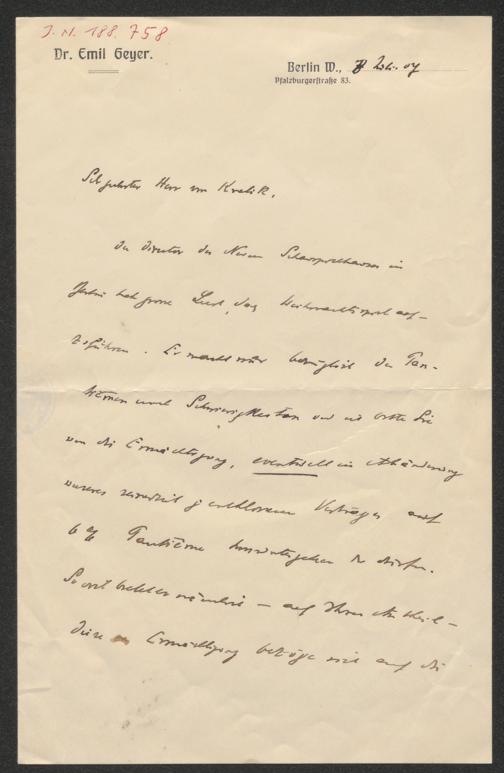 J. N. 188.758
Dr. Emil Geyer.
Berlin W., 07
Pfalzburgerstraße 83.
Sehr geehrter Herr von Kralik.
Der Director des Neuen Schauspielhauses in
Berlin hat grosse Lust, das Weihnachtsspiel auf-
zuführen. Er macht mir bezüglich der Tan-
tièmen noch Schwierigkeiten und ich bitte Sie
um die Ermächtigung, eventuell in Abänderung
unseres geschlossenen Vertrages auf
6 % Tantième heruntergehen zu dürfen.
So viel nämlich – auf Ihren Antheil –
diese Ermächtigung bezöge sich auf die